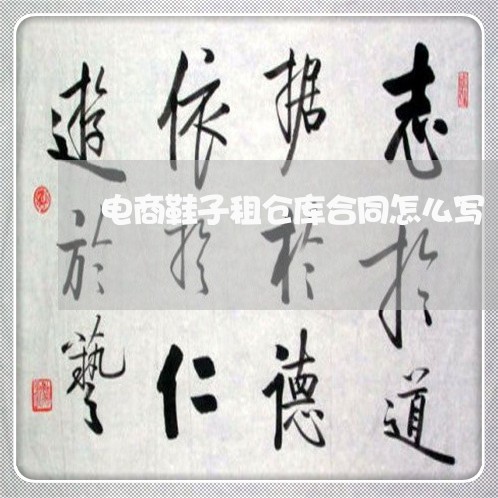 志於道
据於德
依於仁
遊於藝
电商鞋子租仓库合同怎么写